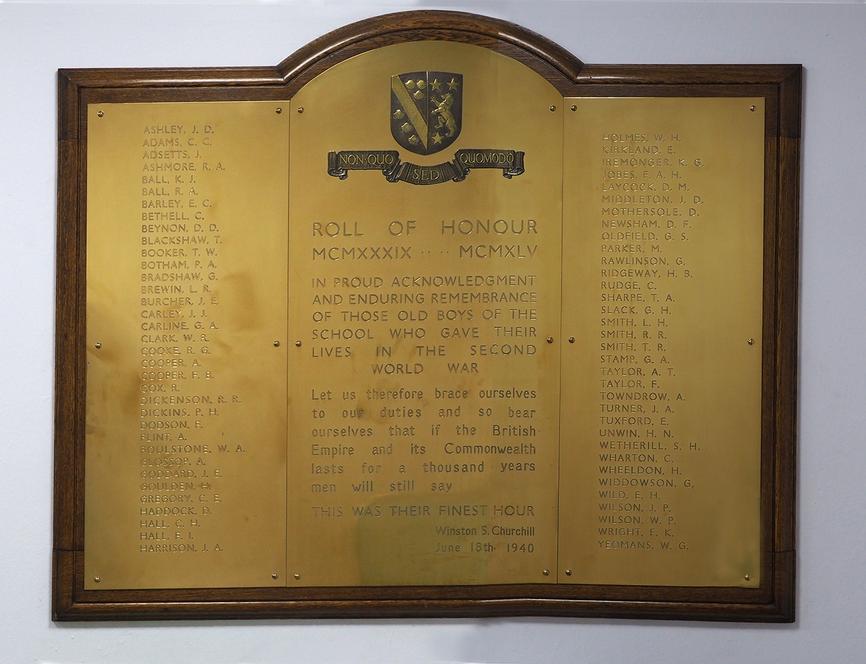 NON·QUO SED QUOMODO
ASHLEY, J. D.
ADAMS, C. C.
ADSETTS, J.
ASHMORE, R. A.
BALL, K. J.
BALL, R. A.
BARLEY, E. C.
BETHELL, C.
BEYNON, D. D.
BLACKSHAW, T.
BOOKER, T. W.
BOTHAM, P. A.
BRADSHAW, G.
BREWIN, L. R.
BURCHER, J. E.
CARLEY, J. J.
CARLINE, G. A.
CLARK, W. R.
COOKE, R. G.
COOPER, A.
COOPER, F. B.
COX, R.
DICKENSON, R. R.
DICKINS, P. H.
DODSON, E.
FLINT, A.
FOULSTONE, W. A.
GLOSSOP, A.
GODDARD, J. E.
GOULDEN, H.
GREGORY, C. E.
HADDOCK, D.
HALL, C. H.
HALL, F. I.
HARRISON, J. A.
ROLL OF HONOUR
MCMXXXIX ···· MCMXLV
IN PROUD ACKNOWLEDGMENT
AND ENDURING REMEMBRANCE
OF THOSE OLD BOYS OF THE
SCHOOL WHO GAVE THEIR
LIVES IN THE SECOND
WORLD WAR
Let us therefore brace ourselves
to our duties and so bear
ourselves that if the British
Empire and its Commonwealth
lasts for a thousand years
men will still say
THIS WAS THEIR FINEST HOUR
Winston S. Churchill
June 18th 1940
HOLMES, W. H.
KIRKLAND, E.
IREMONGER, K. G.
JOBES, E. A. H.
LAYCOCK, D. M.
MIDDLETON, J. D.
MOTHERSOLE, D.
NEWSHAM, D. F.
OLDFIELD, G. S.
PARKER, M.
RAWLINSON, G.
RIDGEWAY, H. B.
RUDGE, C.
SHARPE, T. A.
SLACK, G. H.
SMITH, L. H.
SMITH, R. R.
SMITH, T. R.
STAMP, G. A.
TAYLOR, A. T.
TAYLOR, F.
TOWNDROW, A.
TURNER, J. A.
TUXFORD, E.
UNWIN, H. N.
WETHERILL, S. H.
WHARTON, C.
WHEELDON, H.
WIDDOWSON, G.
WILD, E. H.
WILSON, J. P.
WILSON, W. P.
WRIGHT, E. K.
YEOMANS, W. G.